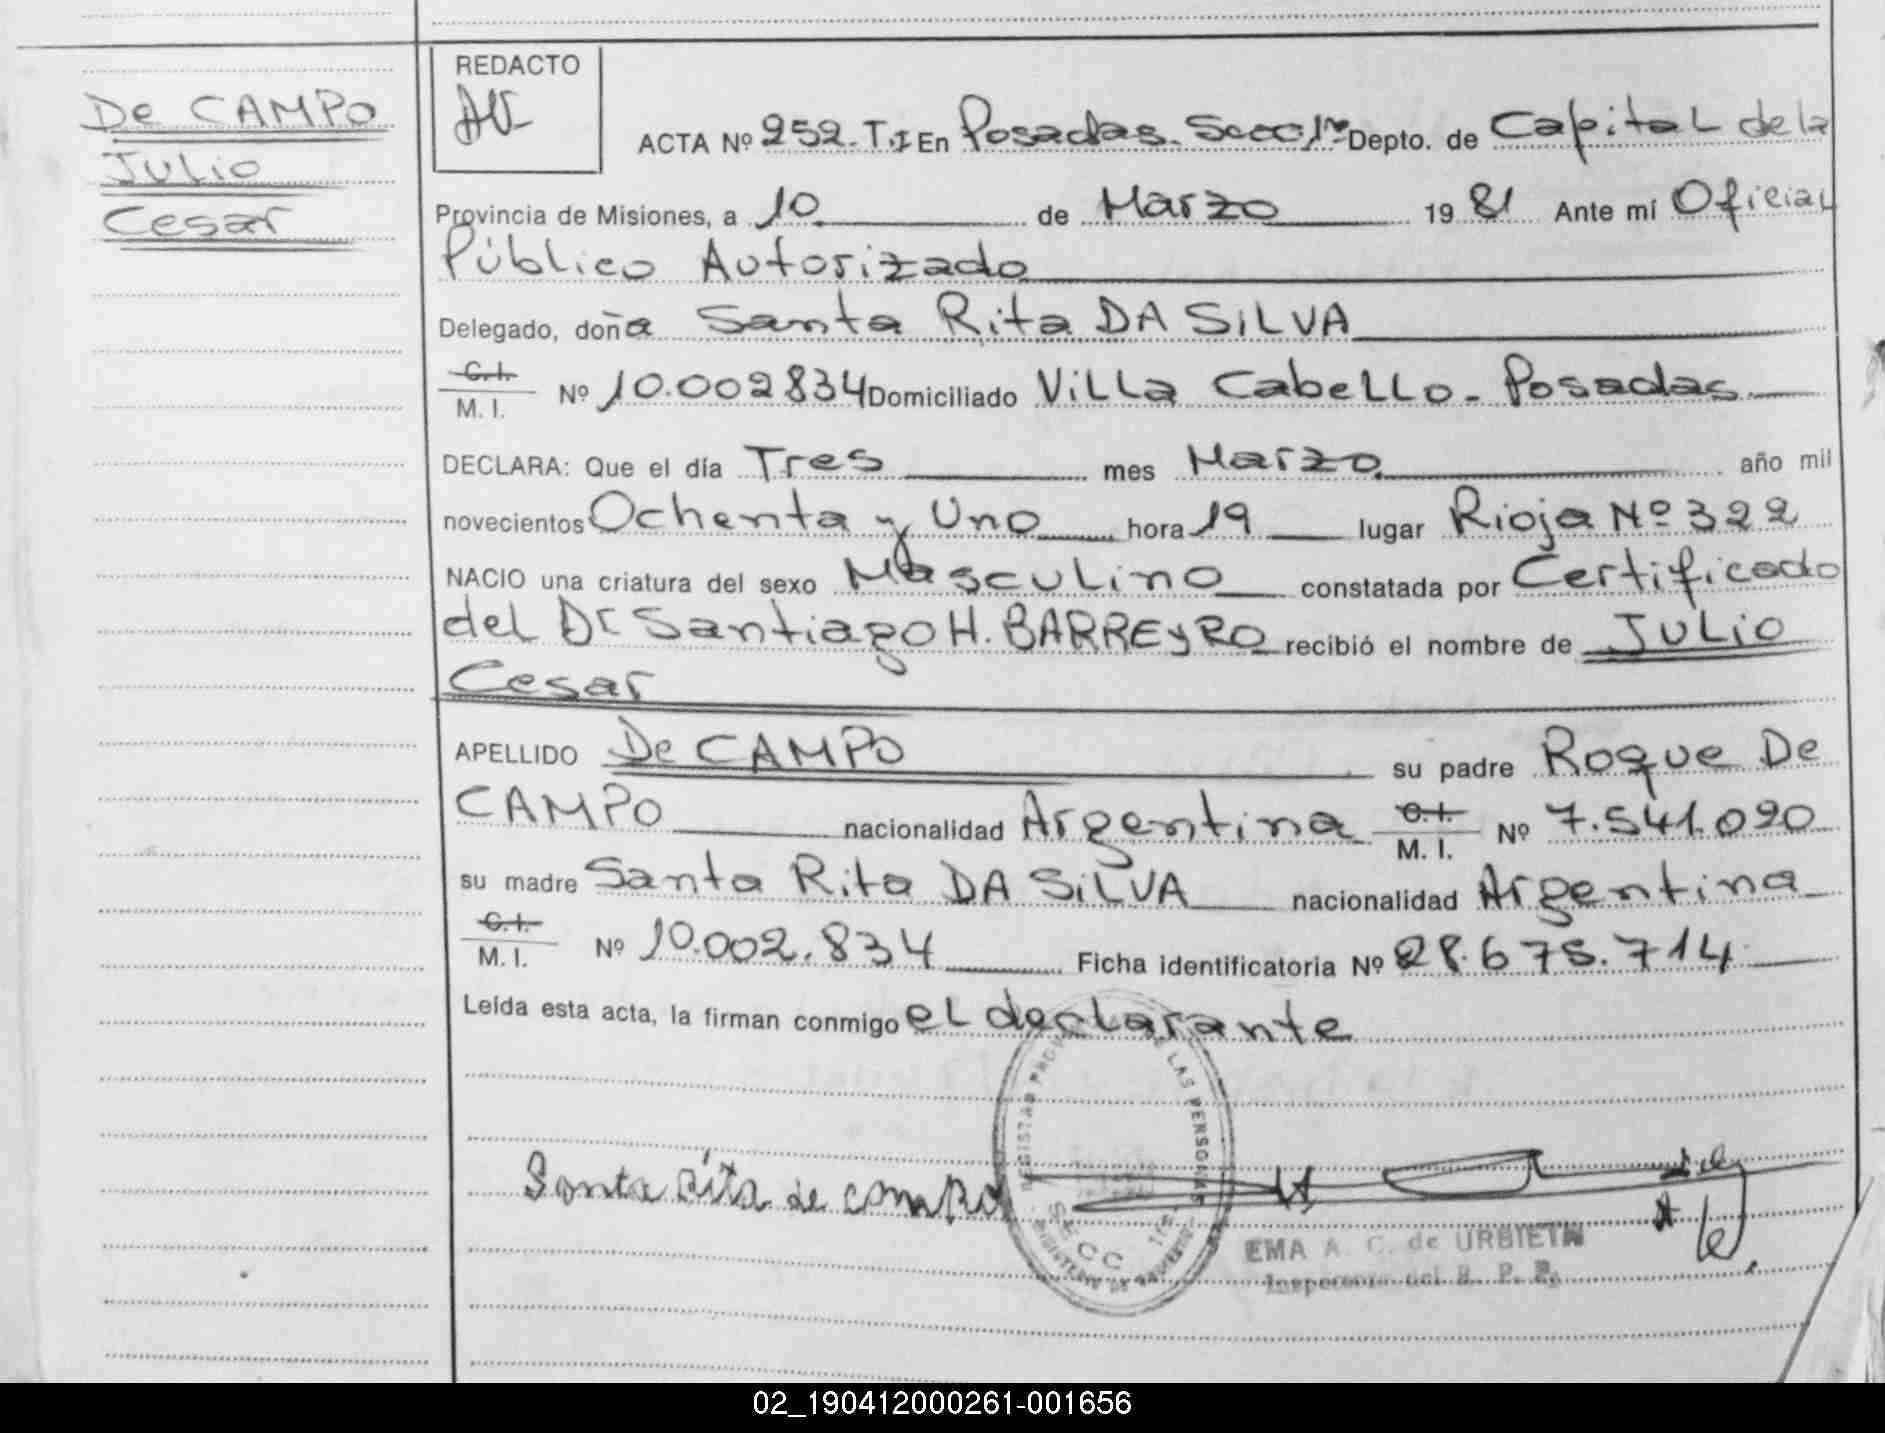 De CAMPO
Julio
Cesar
REDACTO
ACTA Nº 252. T.I En Posadas. Secc 1ra Depto. de Capital de la
Provincia de Misiones, a 10 de Marzo 19 81 Ante mí Oficial
Público Autorizado
Delegado, doña Santa Rita DA SILVA
C.I.
M. I. Nº 10.002834 Domiciliado Villa Cabello - Posadas
DECLARA: Que el día Tres mes Marzo año mil
novecientos Ochenta y Uno hora 19 lugar Rioja Nº 322
NACIO una criatura del sexo Masculino constatada por Certificado
del Dr Santiago H. BARREYRO recibió el nombre de Julio
Cesar
APELLIDO De CAMPO su padre Roque De
CAMPO nacionalidad Argentina C.I. M. I. Nº 7.541.090
su madre Santa Rita DA SILVA nacionalidad Argentina
C.I.
M. I. Nº 10.002.834 Ficha identificatoria Nº 28.675.714
Leída esta acta, la firman conmigo el declarante
REGISTRO PROV DE LAS PERSONAS
SECC
Santa Rita de Campo
EMA A. C. de URBIETA
Inspectora del R. P. P.
02_190412000261-001656